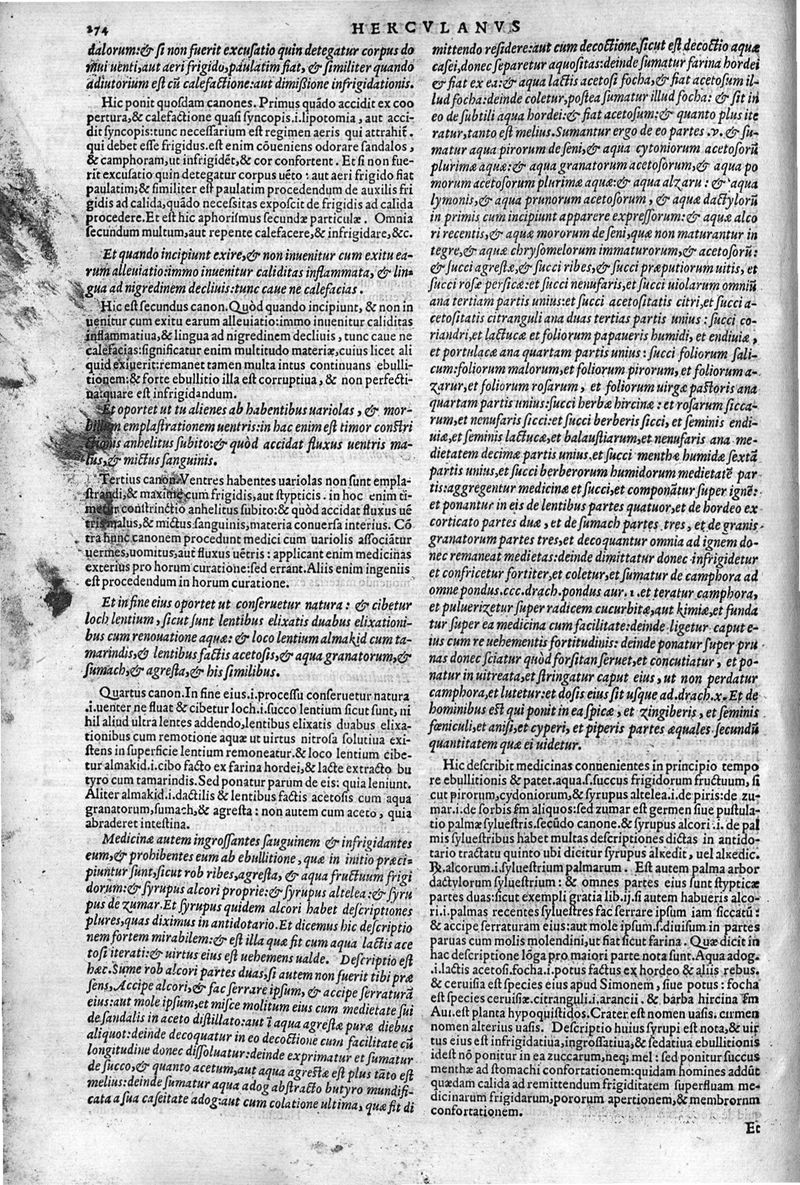 274 HERCVLANVS
dalorum:& si non fuerit excusatio quin detegatur corpus do
mui uenti, aut aeri frigido, paulatim fiat, & similiter quando
adiutorium est cũ calefactione:aut dimißione infrigidationis.
Hic ponit quosdam canones. Primus quãdo accidit ex coo
pertura,& calefactione quasi syncopis.i.lipotomia, aut acci-
dit syncopis:tunc necessarium est regimen aeris qui attrahit̃.
qui debet esse frigidus.est enim cõueniens odorare sandalos, &
& camphoram,ut infrigidēt,& cor confortent. Et si non fue-
rit excusatio quin detegatur corpus uēto: aut aeri frigido fiat
paulatim;& similiter est paulatim procedendum de auxilis fri
gidis ad calida,quãdo necessitas exposcit de frigidis ad calida
procedere.Et est hic aphorismus secundæ particulæ. Omnia
secundum multum,aut repente calefacere,& infrigidare,&c.
Et quando incipiunt exire,& non inuenitur cum exitu ea-
rum alleuiatio:immo inuenitur caliditas inflammata, & lin-
gua ad nigredinem decliuis:tunc caue ne calefacias.
Hic est secundus canon. Quòd quando incipiunt, & non in
uenitur cum exitu earum alleuiatio:immo inuenitur caliditas
inflammatiua,& lingua ad nigredinem decliuis, tunc caue ne
calefacias:significatur enim multitudo materiæ,cuius licet ali
quid exiuerit:remanet tamen multa intus continuans ebulli-
tionem:& forte ebullitio illa est corruptiua, & non perfecti-
ua:quare est infrigidandum.
Et oportet ut tu alienes ab habentibus uariolas, & mor-
billum emplastrationem uentris:in hac enim est timor constri
ctionis anhelitus subito:& quòd accidat fluxus uentris ma-
lus,& mictus sanguinis.
Tertius canon.Ventres habentes uariolas non sunt empla-
strandi,& maxime cum frigidis,aut stypticis. in hoc enim ti-
metur constrinctio anhelitus subito:& quòd accidat fluxus uē
tris malus,& mictus sanguinis,materia conuersa interius. Cõ
tra hunc canonem procedunt medici cum uariolis associãtur
uermes,uomitus,aut fluxus uētris: applicant enim medicinas
exterius pro horum curatione:sed errant.Aliis enim ingeniis
est procedendum in horum curatione.
Et in fine eius oportet ut conseruetur natura: & cibetur
loch lentium, sicut sunt lentibus elixatis duabus elixationi-
bus cum renouatione aquæ: & loco lentium almakid cum ta-
marindis,& lentibus factis acetosis,& aqua granatorum,&
sumach,& agresta,& his similibus.
Quartus canon.In fine eius.i.processu conseruetur natura
.i.uenter ne fluat & cibetur loch.i.succo lentium sicut sunt, ni
hil aliud ultra lentes addendo,lentibus elixatis duabus elixa-
tionibus cum remotione aquæ ut uirtus nitrosa solutiua exi-
stens in superficie lentium remoneatur.& loco lentium cibe-
tur almakid.i.cibo facto ex farina hordei,& lacte extracto bu
tyro cum tamarindis. Sed ponatur parum de eis: quia leniunt.
Aliter almakid.i.dactilis & lentibus factis acetosis cum aqua
granatorum,sumach,& agresta: non autem cum aceto, quia
abraderet intestina.
Medicinæ autem ingrossantes sanguinem & infrigidantes
eum,& prohibentes eum ab ebullitione, quæ in initio præci-
piuntur sunt,sicut rob ribes,agresta,& aqua fructuum frigi
dorum:& syrupus alcori proprie:& syrupus altelea:& syru
pus de zumar.Et syrupus quidem alcori habet descriptiones
plures,quas diximus in antidotario.Et dicemus hic descriptio
nem fortem mirabilem:& est illa quæ fit cum aqua lactis ace
tosi iterati:& uirtus eius est uehemens ualde. Descriptio est
hæc.Sume rob alcori partes duas,si autem non fuerit tibi præ
sens,Accipe alcori,& fac serrare ipsum, & accipe serraturã
eius:aut mole ipsum,et misce molitum eius cum medietate sui
de sandalis in aceto distillato:aut ĩ aqua agrestæ puræ diebus
aliquot:deinde decoquatur in eo decoctione cum facilitate cũ
longitudine donec dissoluatur:deinde exprimatur et sumatur
de succo,& quanto acetum,aut aqua agrestæ est plus tãto est
melius:deinde sumatur aqua adog abstracto butyro mundifi-
cata a sua caseitate adog:aut cum colatione ultima, quæ fit di
mittendo residere:aut cum decoctione,sicut est decoctio aquæ
casei,donec separetur aquositas:deinde sumatur farina hordei
& fiat ex ea:& aqua lactis acetosi focha,& fiat acetosum il-
lud focha:deinde coletur,postea sumatur illud focha: & sit in
eo de subtili aqua hordei:& fiat acetosum:& quanto plus ite
ratur,tanto est melius.Sumantur ergo de eo partes .x. & su-
matur aqua pirorum de seni,& aqua cytoniorum acetosorũ
plurimæ aquæ:& aqua granatorum acetosorum,& aqua po
morum acetosorum plurimæ aquæ:& aqua alzaru: & aqua
lymonis,& aqua prunorum acetosorum, & aquæ dactylorũ
in primis cum incipiunt apparere expressorum:& aquæ alco
ri recentis,& aquæ mororum de seni,quæ non maturantur in
tegre,& aquæ chrysomelorum immaturorum,& acetosorũ:
& succi agrestæ,& succi ribes,& succi præputiorum uitis, et
succi rosæ persicæ:et succi nenufaris,et succi uiolarum omniũ
ana tertiam partis unius:et succi acetositatis citri,et succi a-
cetositatis citranguli ana duas tertias partis unius: succi co-
riandri,et lactucæ et foliorum papaueris humidi, et endiuiæ,
et portulacæ ana quartam partis unius:succi foliorum sali-
cum:foliorum malorum,et foliorum pirorum,et foliorum a-
zarur,et foliorum rosarum, et foliorum uirgæ pastoris ana
quartam partis unius:succi herbæ hircinæ: et rosarum sicca-
rum,et nenufaris sicci:et succi berberis sicci, et seminis endi-
uiæ,et seminis lactucæ,et balaustiarum,et nenufaris ana me-
dietatem decimæ partis unius.et succi menthæ humidæ sextã
partis unius,et succi berberorum humidorum medietatē par
tis:aggregentur medicinæ et succi,et componãtur super ignē:
et ponantur in eis de lentibus partes quatuor,et de hordeo ex
corticato partes duæ, et de sumach partes tres, et de granis
granatorum partes tres,et decoquantur omnia ad ignem do-
nec remaneat medietas:deinde dimittatur donec infrigidetur
et confricetur fortiter,et coletur,et sumatur de camphora ad
omne pondus.ccc.drach.pondus aur. i .et teratur camphora,
et puluerizetur super radicem cucurbitæ,aut kimiæ,et funda
tur super ea medicina cum facilitate:deinde ligetur caput e-
ius cum re uehementis fortitudinis: deinde ponatur super pru
nas donec sciatur quòd forsitan seruet,et concutiatur, et po-
natur in uitreata,et stringatur caput eius, ut non perdatur
camphora,et lutetur:et dosis eius sit usque ad.drach.x.Et de
hominibus est qui ponit in ea spicæ, et zingiberis, et seminis
fœniculi,et anisi,et cyperi, et piperis partes æquales secundũ
quantitatem quæ ei uidetur.
Hic describit medicinas conuenientes in principio tempo
re ebullitionis & patet.aqua.s.succus frigidorum fructuum, si
cut pirorum,cydoniorum,& syrupus altelea.i.de piris:de zu-
mar.i.de sorbis ẜm aliquos:sed zumar est germen siue pustula-
tio palmæ syluestris.secũdo canone.& syrupus alcori .i. de pal
mis syluestribus habet multas descriptiones dictas in antido-
tario tractatu quinto ubi dicitur syrupus alkedit, uel alkedic.
℞.alcorum.i.syluestrium palmarum. Est autem palma arbor
dactylorum syluestrium: & omnes partes eius sunt stypticæ
partes duas:sicut exempli gratia lib.ij.si autem habueris alco-
ri.i.palmas recentes syluestres fac serrare ipsum iam siccatũ:
& accipe serraturam eius:aut mole ipsum.s.diuisum in partes
paruas cum molis molendini,ut fiat sicut farina. Quæ dicit in
hac descriptione lõga pro maiori parte nota sunt.Aqua adog.
.i.lactis acetosi.focha.i.potus factus ex hordeo & aliis rebus.
& ceruisia est species eius apud Simonem, siue potus: focha
est species ceruisiæ.citranguli.i.arancii. & barba hircina ẜm
Aui.est planta hypoquistidos.Crater est nomen uasis. cirmen
nomen alterius uasis. Descriptio huius syrupi est nota,& uir
tus eius est infrigidatiua,ingrossatiua,& sedatiua ebullitionis
idest nõ ponitur in ea zuccarum,neq; mel: sed ponitur succus
menthæ ad stomachi confortationem:quidam homines addũt
quædam calida ad remittendum frigiditatem superfluam me-
dicinarum frigidarum,pororum apertionem,& membrorum
confortationem.
Et